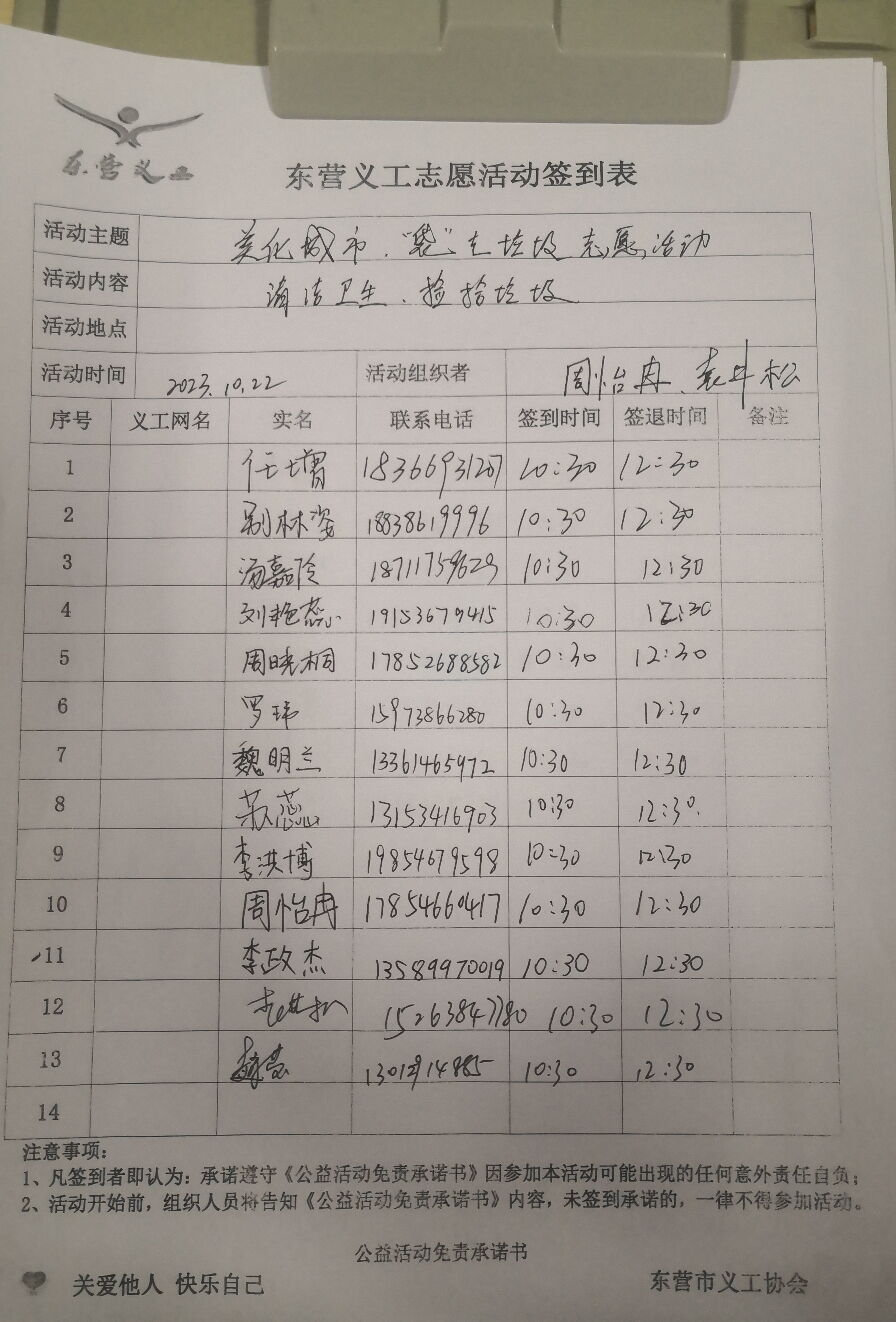 东营义工
东营义工志愿活动签到表
活动主题 美化城市.“袋”走垃圾志愿活动
活动内容 清洁卫生、捡拾垃圾
活动地点
活动时间 2023.10.22 活动组织者 周怡冉、袁牛松
序号 义工网名 实名 联系电话 签到时间 签退时间 备注
1 任增 18366931207 10:30 12:30
2 别林姿 18838619996 10:30 12:30
3 汤嘉玲 18711759629 10:30 12:30
4 刘艳蕊 19153679415 10:30 12:30
5 周晓桐 17852688582 10:30 12:30
6 罗玮 15973866280 10:30 12:30
7 魏明兰 13361465972 10:30 12:30
8 苏蕊 13153416903 10:30 12:30.
9 李洪博 19854679598 10:30 12:30
10 周怡冉 17854660417 10:30 12:30
11 李政杰 13589970019 10:30 12:30
12 15263847780 10:30 12:30
13 10:30 12:30
14
注意事项:
1、凡签到者即认为:承诺遵守《公益活动免责承诺书》因参加本活动可能出现的任何意外责任自负;
2、活动开始前,组织人员将告知《公益活动免责承诺书》内容,未签到承诺的,一律不得参加活动。
公益活动免责承诺书
关爱他人 快乐自己 东营市义工协会